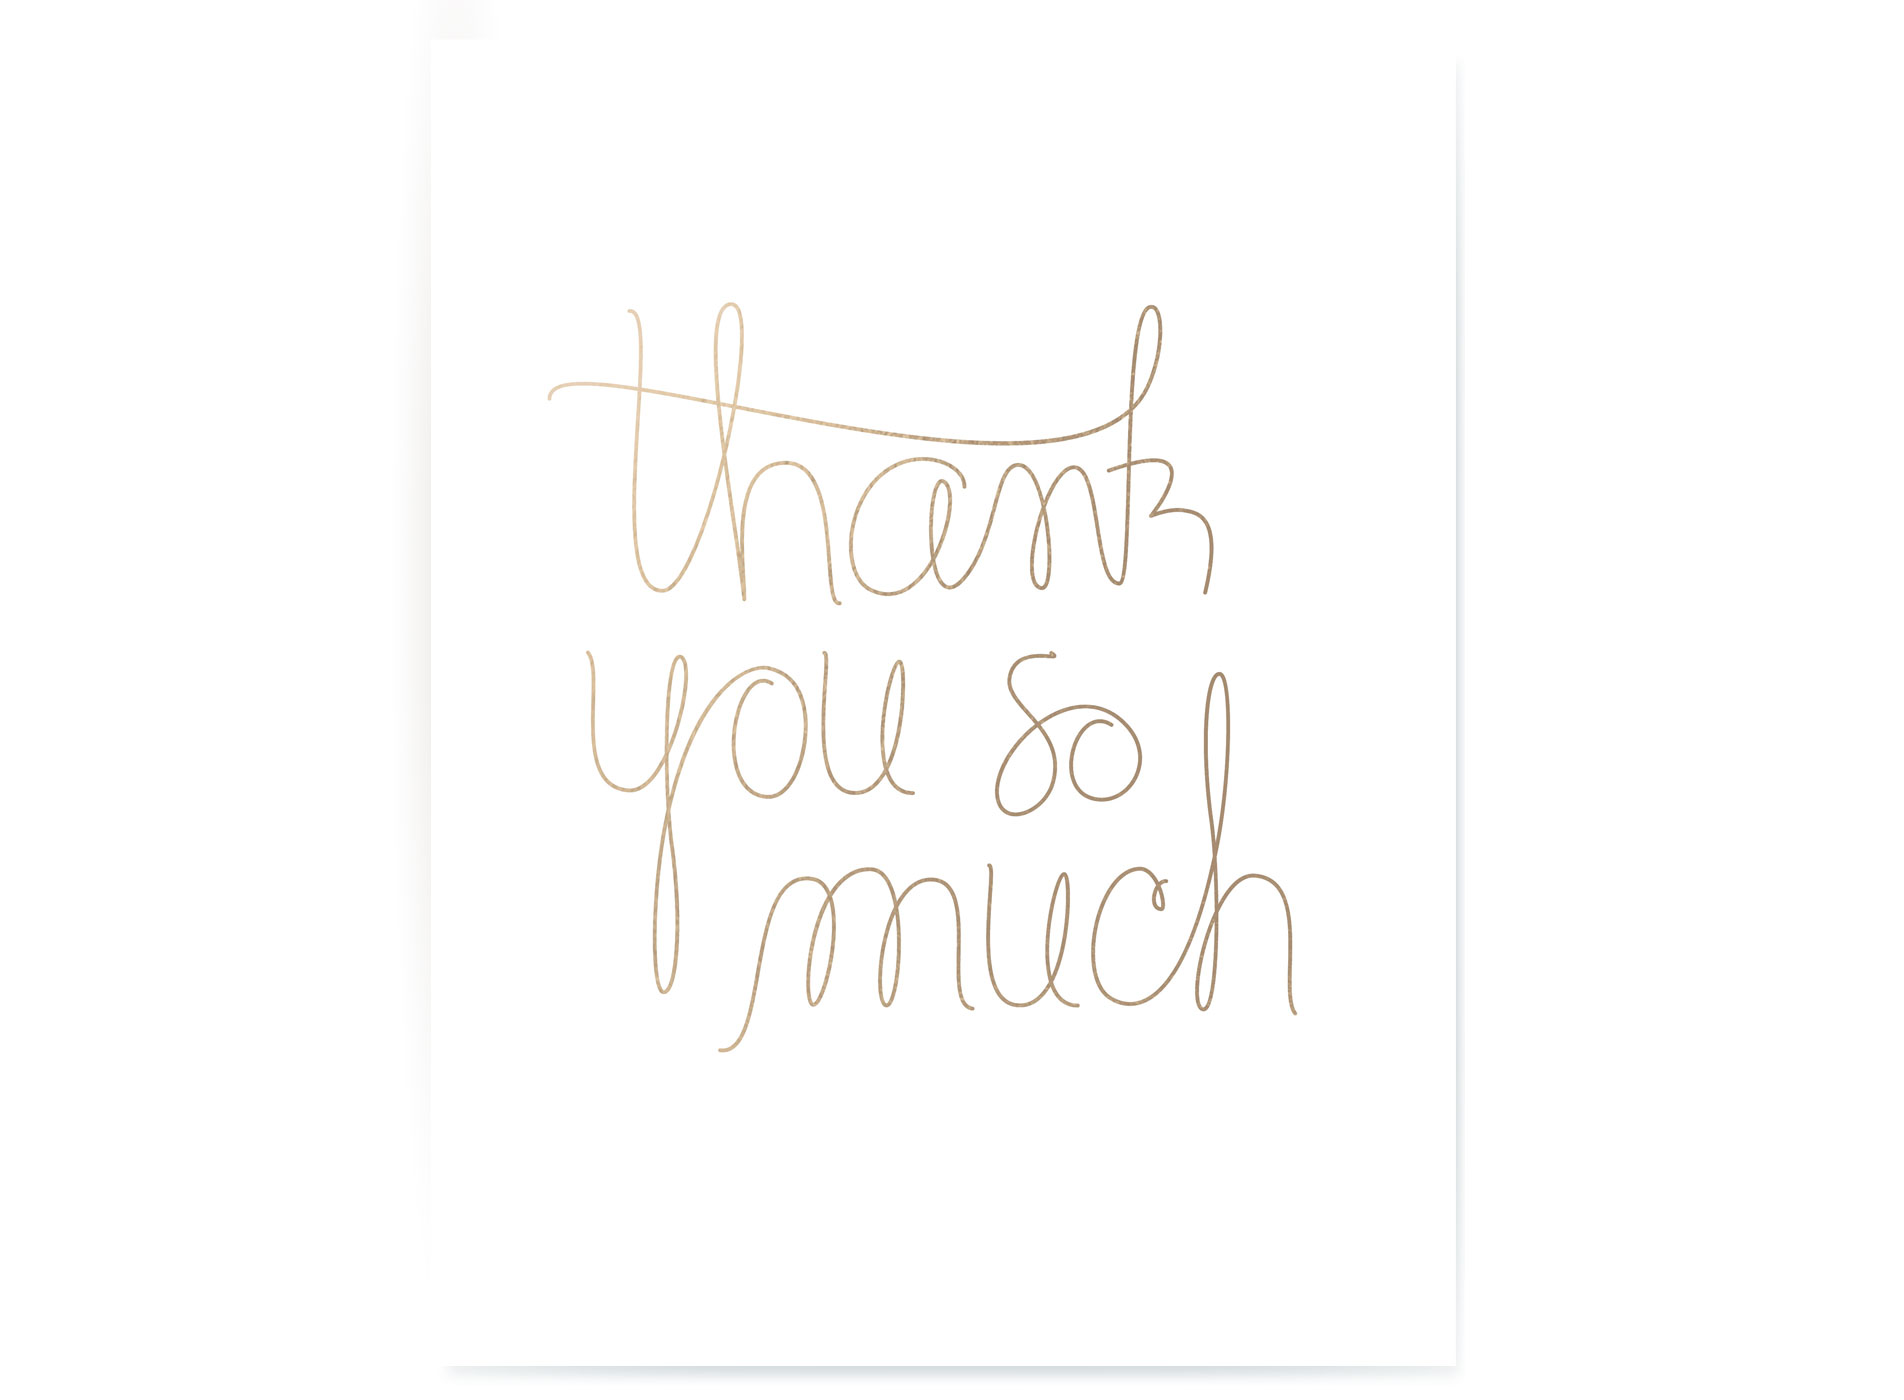 thank
you so
much